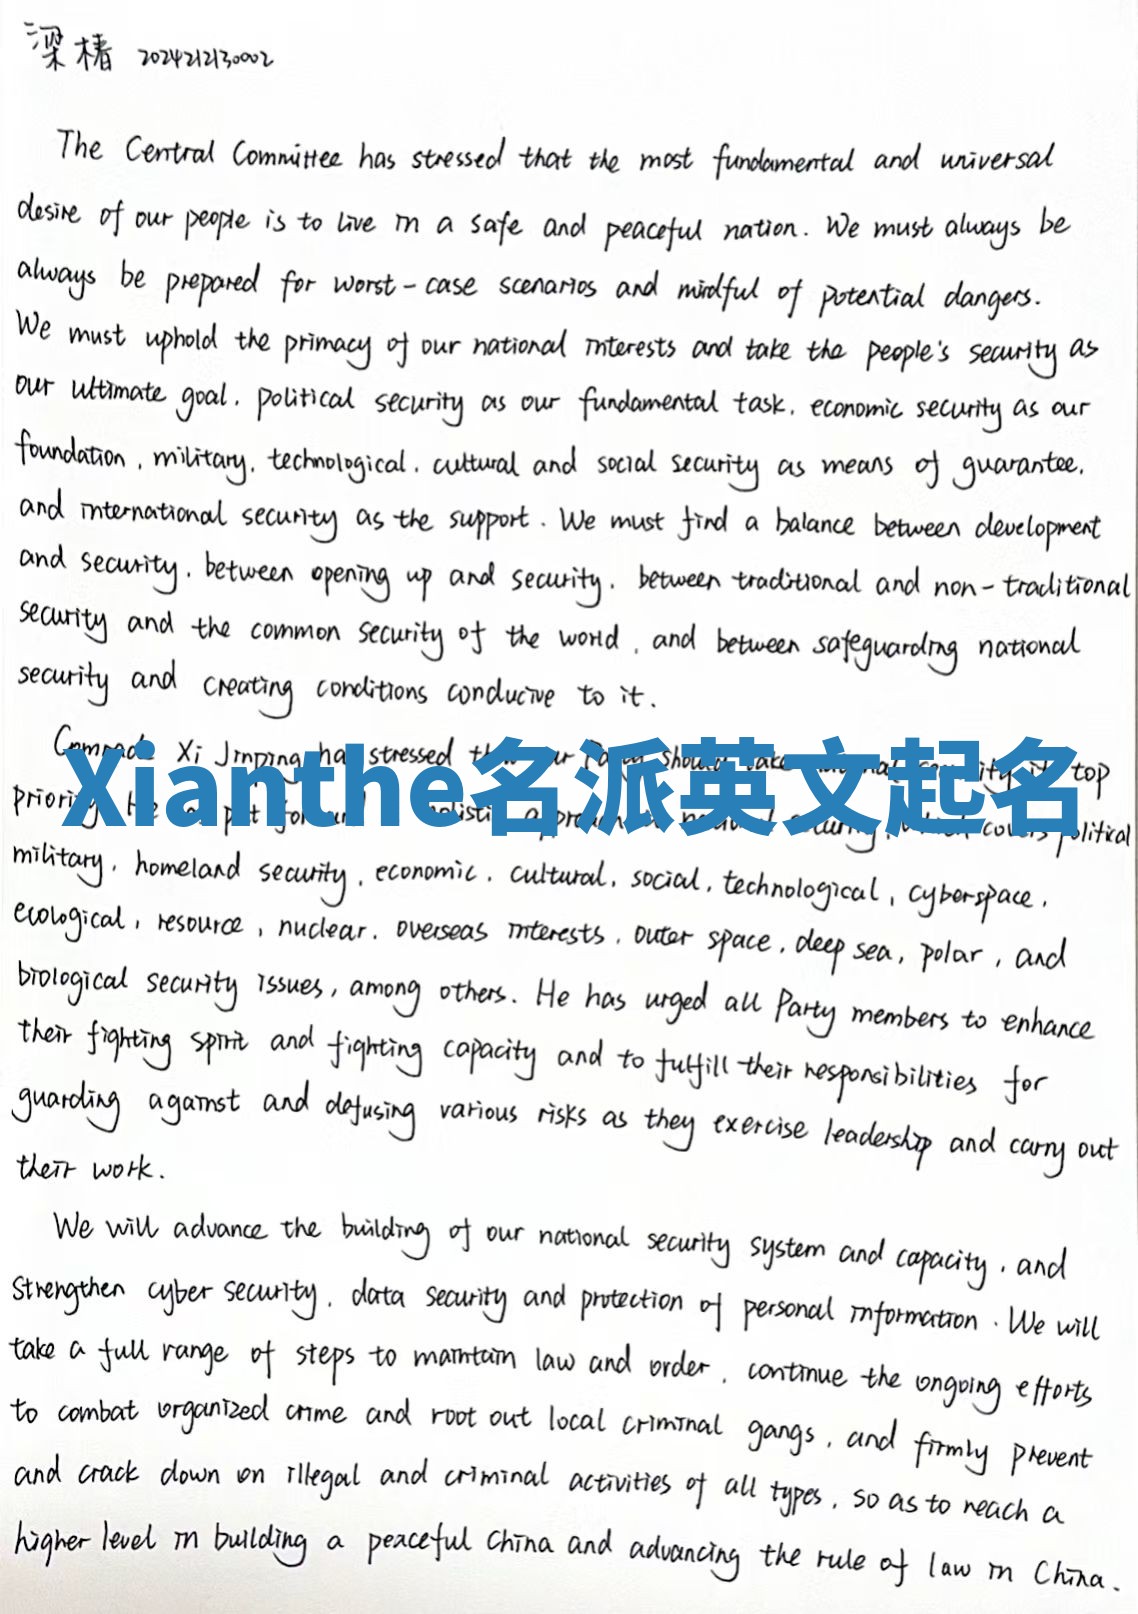 梁椿 2024212130002
The Central Committee has stressed that the most fundamental and universal
desire of our people is to live in a safe and peaceful nation. We must always be
always be prepared for worst-case scenarios and mindful of potential dangers.
We must uphold the primacy of our national interests and take the people's security as
our ultimate goal, political security as our fundamental task, economic security as our
foundation, military, technological, cultural and social security as means of guarantee,
and international security as the support. We must find a balance between development
and security, between opening up and security, between traditional and non-traditional
security and the common security of the world, and between safeguarding national
security and creating conditions conducive to it.
Xi Jinping has stressed top
Xianthe名派英文起名
political
military, homeland security, economic, cultural, social, technological, cyberspace,
ecological, resource, nuclear, overseas interests, outer space, deep sea, polar, and
biological security issues, among others. He has urged all Party members to enhance
their fighting spirit and fighting capacity and to fulfill their responsibilities for
guarding against and defusing various risks as they exercise leadership and carry out
their work.
We will advance the building of our national security system and capacity, and
strengthen cyber security, data security and protection of personal information. We will
take a full range of steps to maintain law and order, continue the ongoing efforts
to combat organized crime and root out local criminal gangs, and firmly prevent
and crack down on illegal and criminal activities of all types, so as to reach a
higher level in building a peaceful China and advancing the rule of law in China.